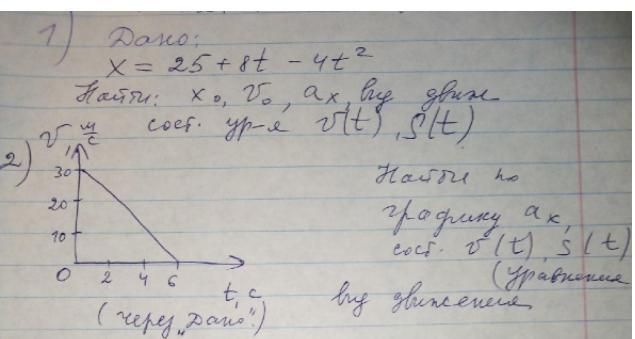 1) Дано:
x = 25 + 8t - 4t²
Найти: x₀, v₀, aₓ, вид движ
сост. ур-я v(t), S(t)
2) v, м/с
30
20
10
0 2 4 6
t, с
(через "Дано":)
Найти по
графику aₓ,
сост. v(t), s(t)
(уравнения
вид движения